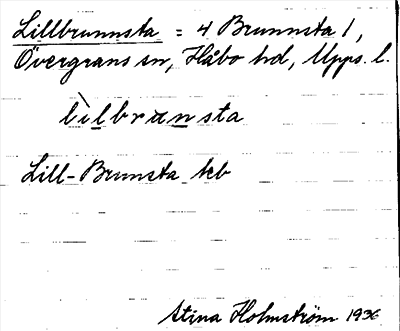 Lillbrunnsta = 4 Brunnsta 1,
Övergrans sn, Håbo hd, Upps. l.
lìlbrunsta
Lill-Brunsta keb
Stina Holmström 1936